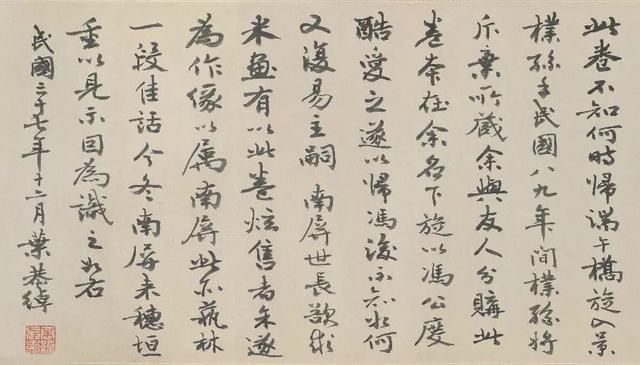 此卷不知何時歸端午橋旋入景
樸孫手民國八九年間樸孫將
斥棄所藏余與友人分購此
卷本在余名下旋以馮公度
酷愛之遂以歸馮後不知如何
又復易主嗣南屏世長欲求
米畫有以此卷炫售者余遂
為作緣以屬南屏此亦藝林
一段佳話今冬南屏來穗垣
重以見示因為識之如右
民國三十七年十二月葉恭綽